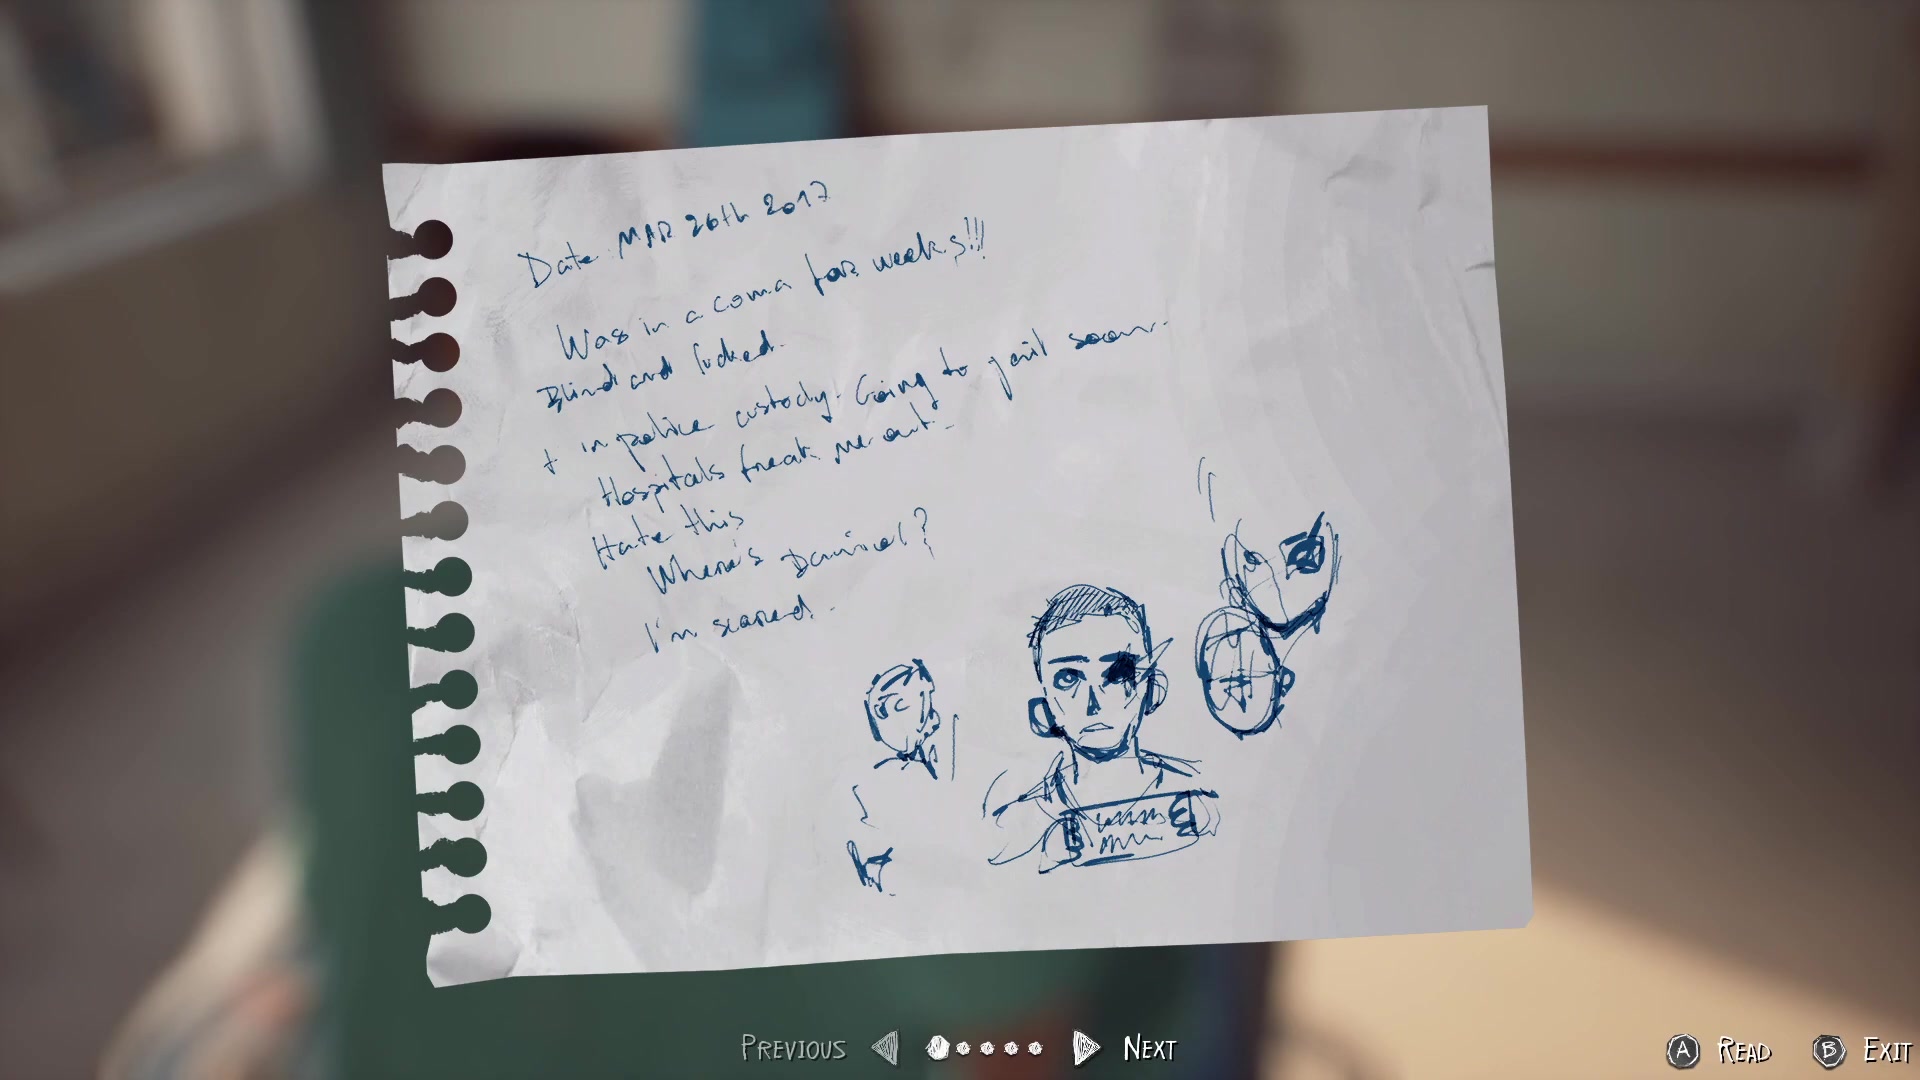 Date MAR 26th 2017
Was in a coma for weeks!!!
Blind and fucked.
+ in police custody. Going to jail soon.
Hospitals freak me out.
Hate this
Where's Daniel?
I'm scared.
PREVIOUS NEXT
A READ B EXIT